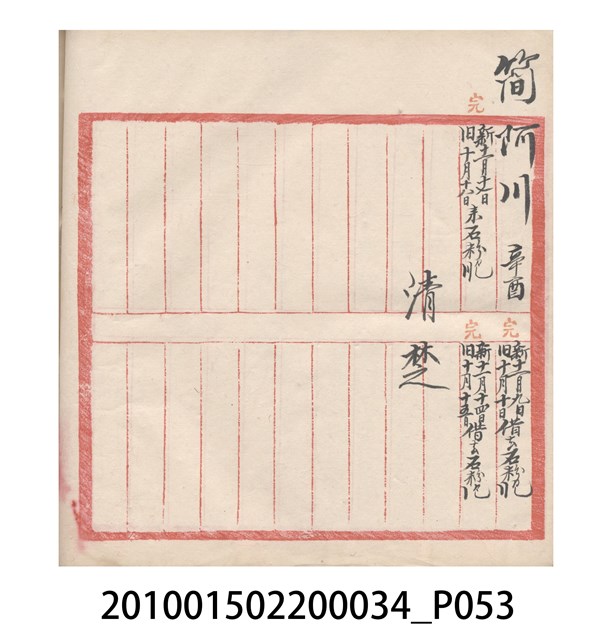 简阿川 辛酉
完
新十二月十七日
旧十月十八日来石粉
完
新十二月九日
旧十月十日借去石粉
完
新十一月十四日
旧十月十五日借去石粉
清楚
201001502200034_P053